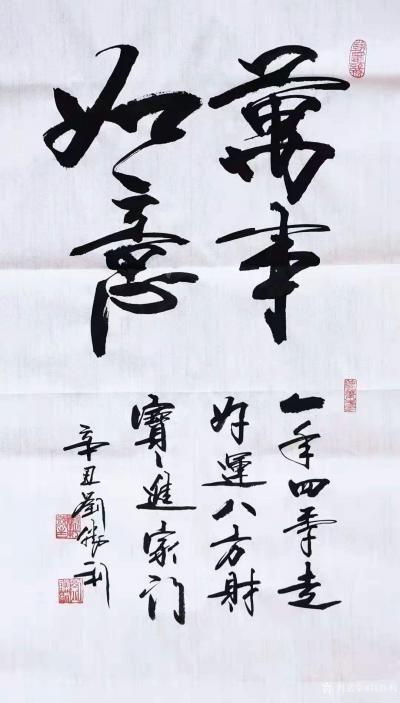 萬事
如意
一年四季走
好運八方財
寶〻進家门
辛丑劉勝利